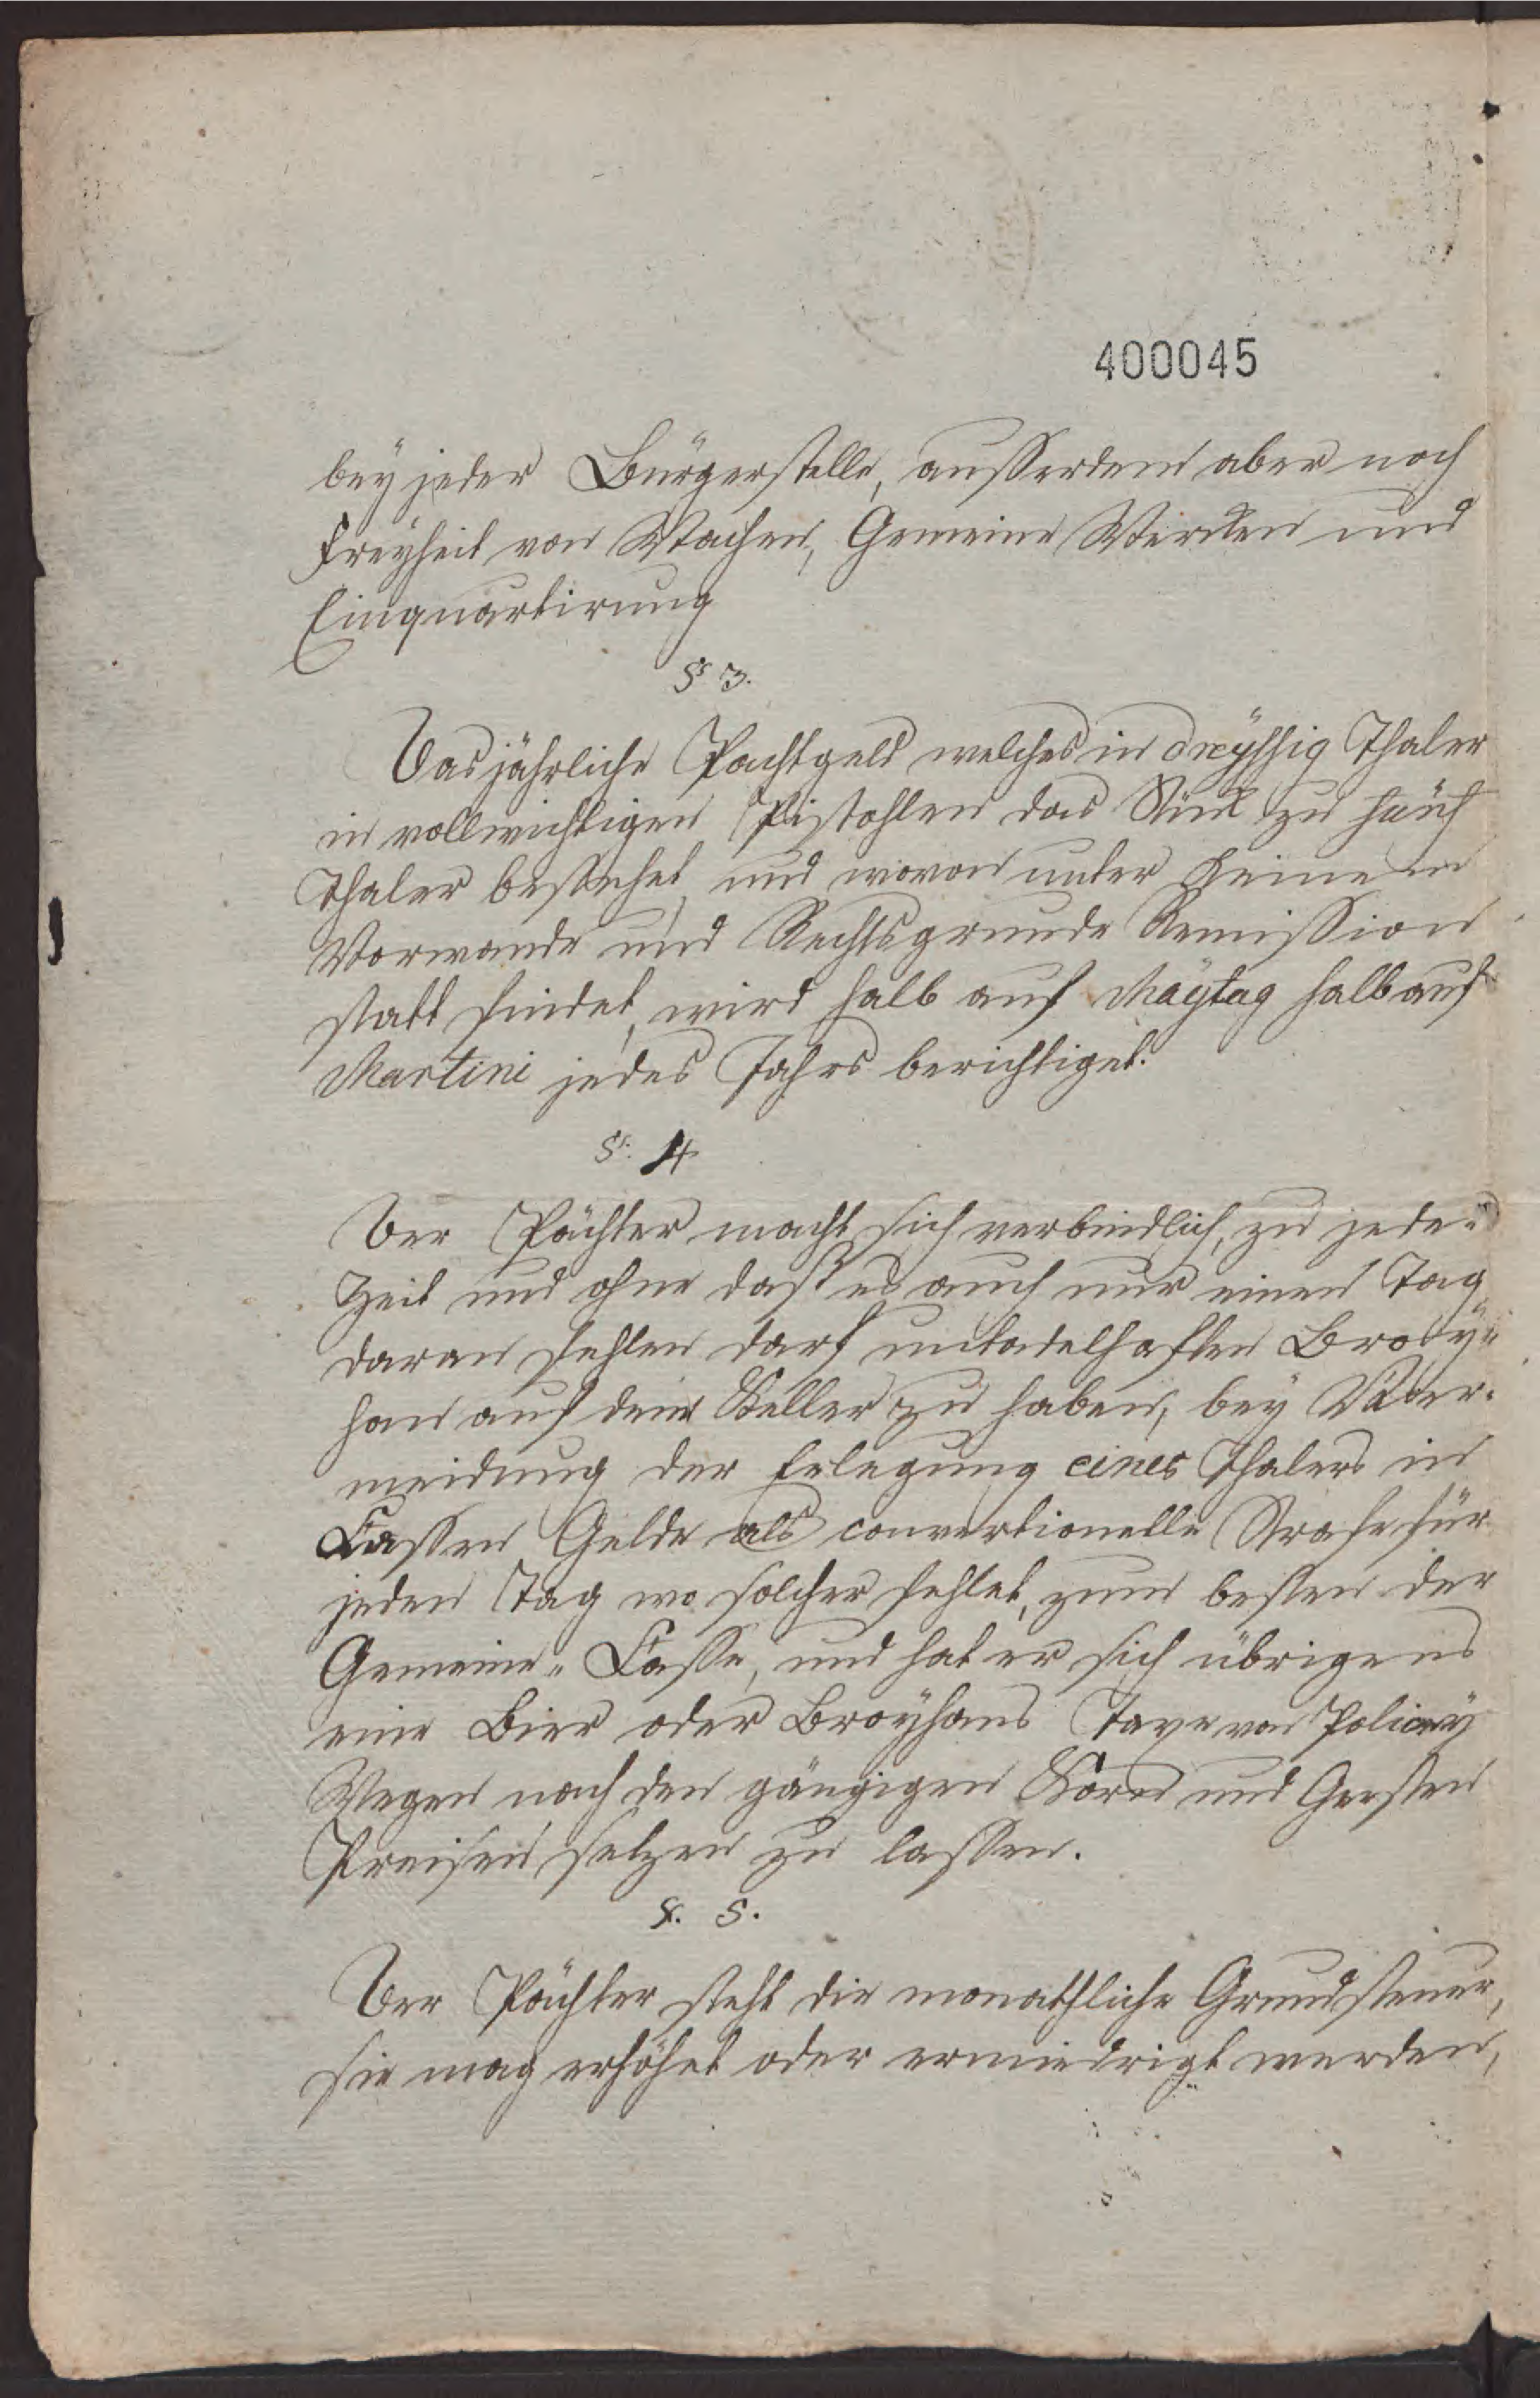 400045
bey jeder Bürgerstelle, ausserdem aber noch
Freyheit von Wachen, Gemeine Werken und
Einquartirung
§ 3.
Das jährliche Pachtgeld welches in dreyssig Thaler
in vollwichtigen Pistohlen das Stück zu fünf
Thaler bestehet, und wovon unter keinem
Vorwande und Rechtsgrunde Remission
statt findet, wird halb auf Maytag halb auf
Martini jedes Jahrs berichtiget.
§. 4
Der Pächter macht sich verbindlich, zu jeder
Zeit und ohne daß es auch nur einen Tag
daran fehlen darf untadelhaften Broy-
han auf dem Keller zu haben, bey Ver-
meidung der Erlegung eines Thalers in
Cassen Gelde als conventionelle Strafe für
jeden Tag wo solcher fehlet, zum besten der
Gemeine-Casse, und hat er sich übrigens
eine Bier oder Broyhans Taxe von Policey
Wegen nach den gängigen Korn und Gersten
Preisen setzen zu lassen.
§. 5.
Der Pächter steht die monathliche Grundsteuer,
sie mag erhöhet oder erniedrigt werden,